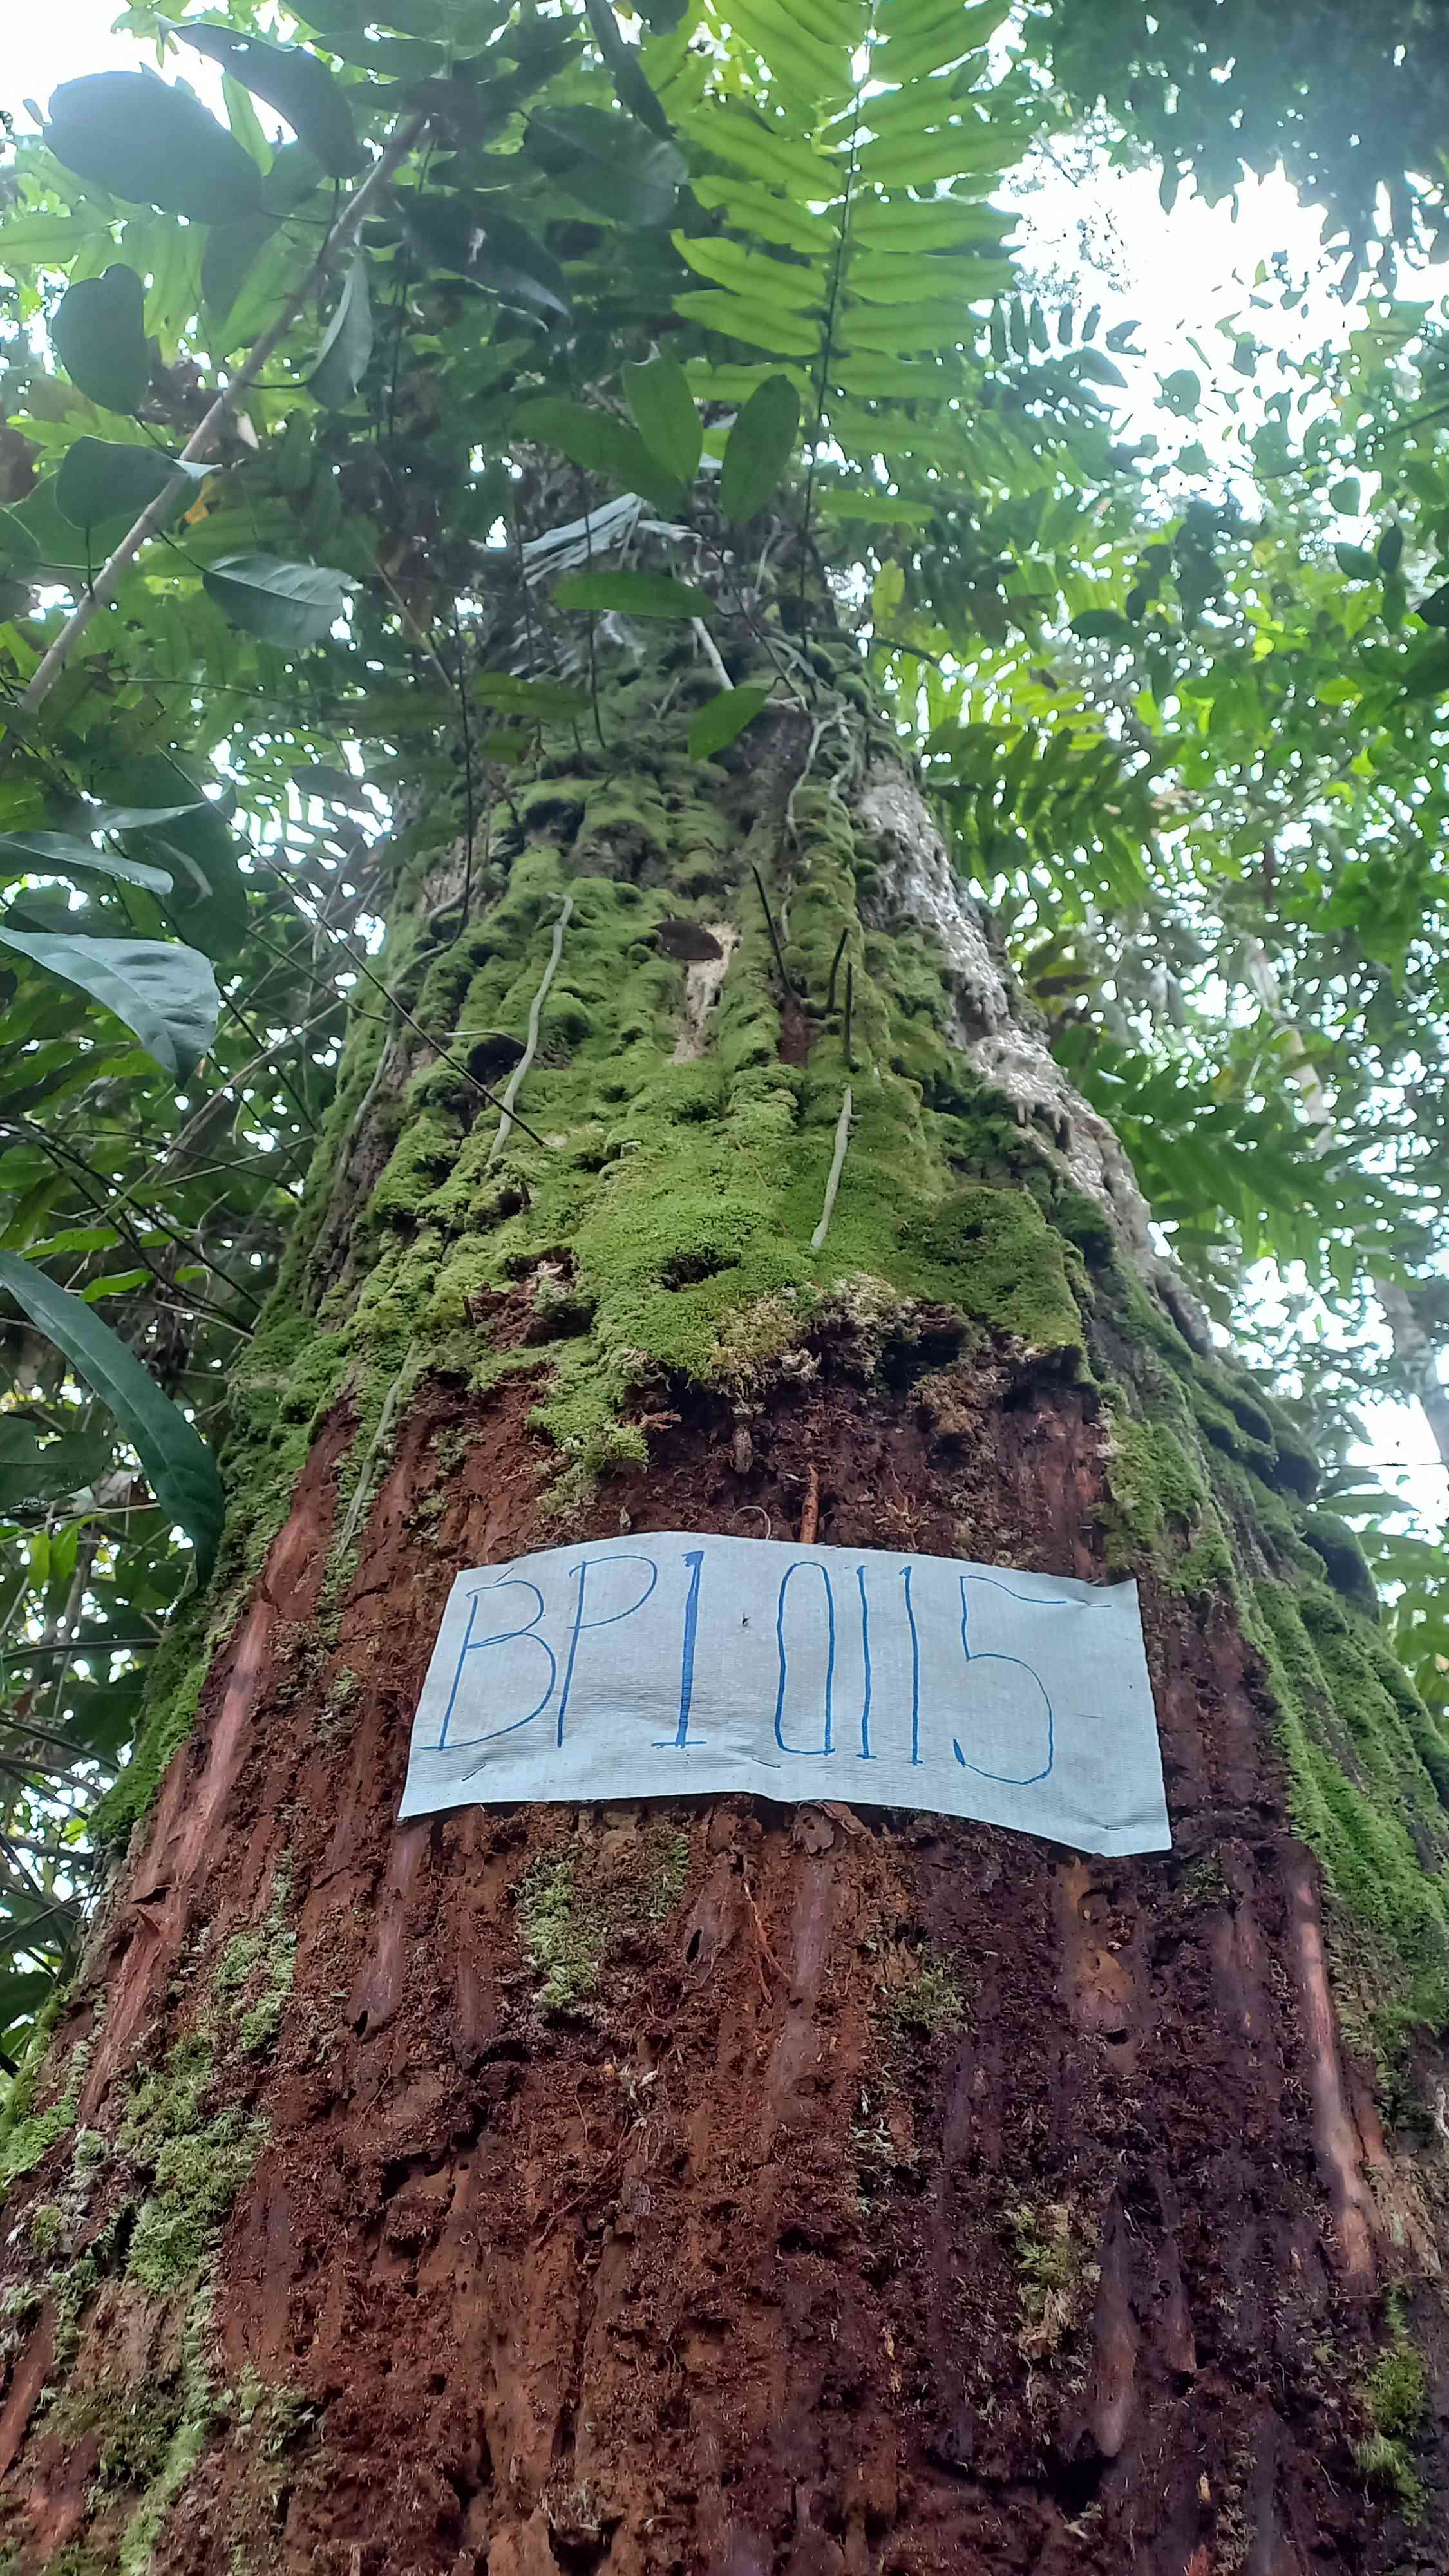 BP1 0115